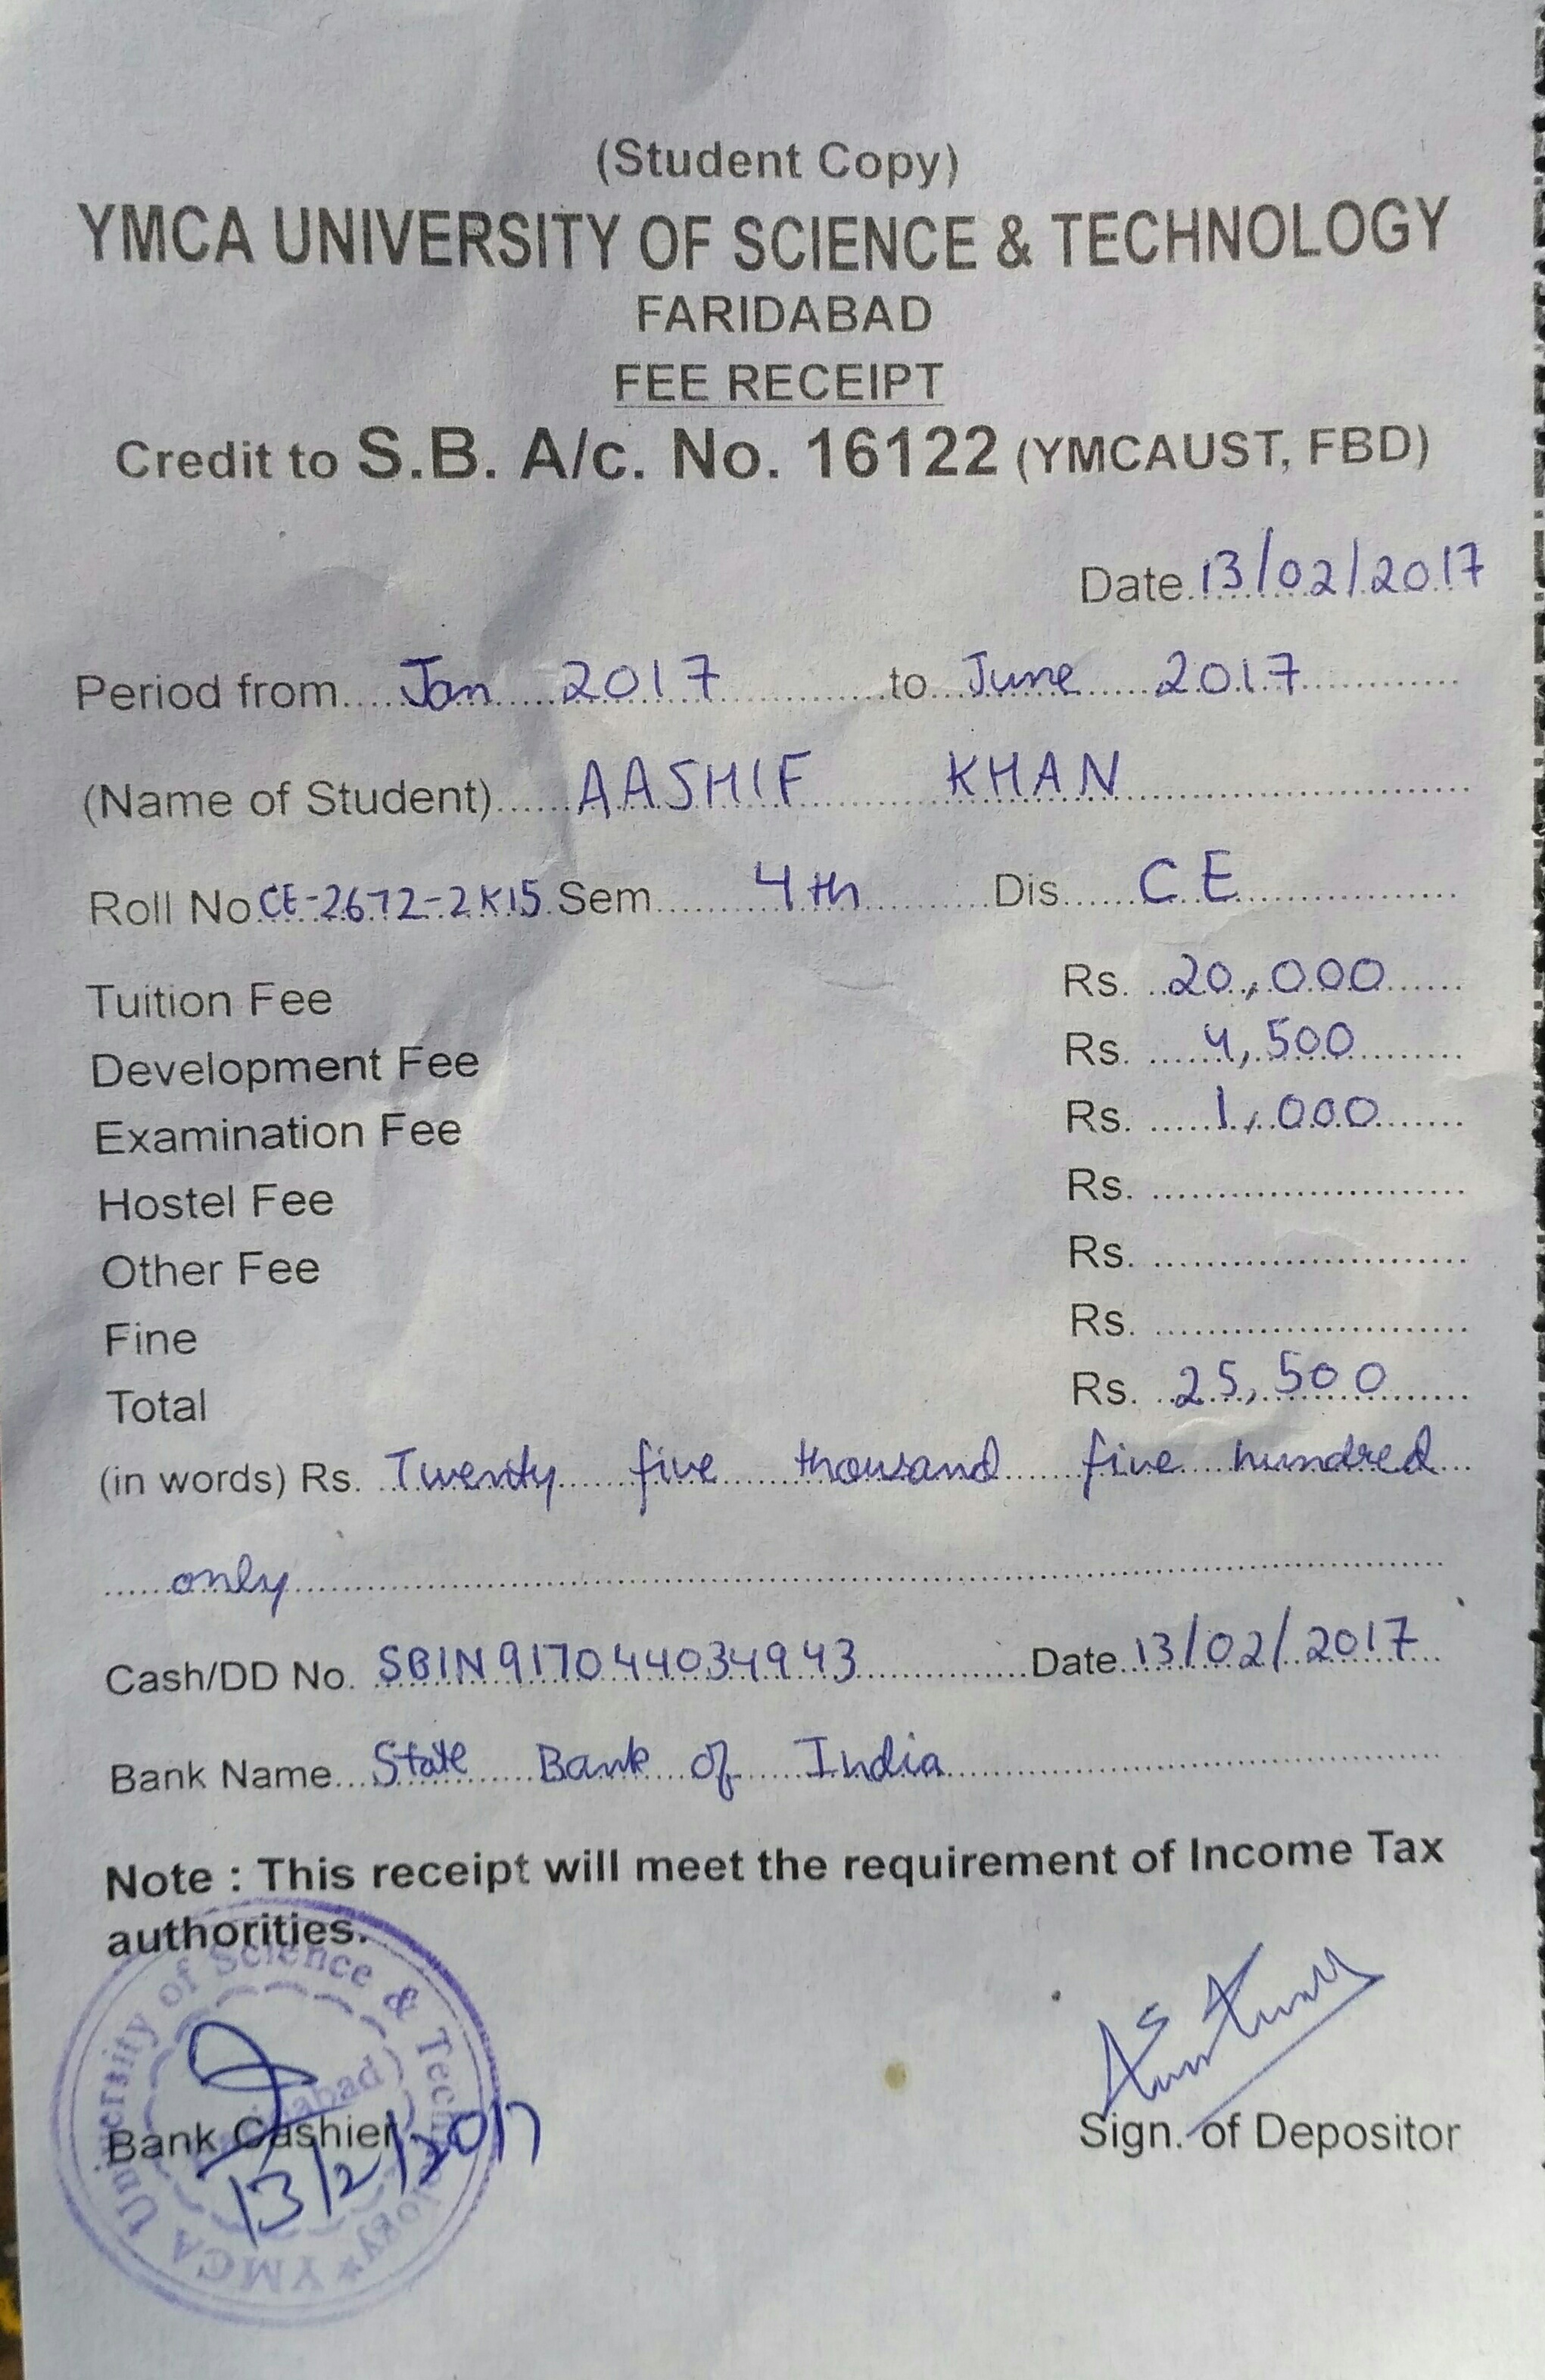 (Student Copy)
YMCA UNIVERSITY OF SCIENCE & TECHNOLOGY
FARIDABAD
FEE RECEIPT
Credit to S.B. A/c. No. 16122 (YMCAUST, FBD)
Date 13/02/2017
Period from Jan 2017 to June 2017
(Name of Student) AASHIF KHAN
Roll No CE-2672-2K15 Sem 4th Dis CE
Tuition Fee Rs. 20,000
Development Fee Rs. 4,500
Examination Fee Rs. 1,000
Hostel Fee Rs.
Other Fee Rs.
Fine Rs.
Total Rs. 25,500
(in words) Rs. Twenty five thousand five hundred
only
Cash/DD No. SBIN917044034943 Date 13/02/2017
Bank Name State Bank of India
Note : This receipt will meet the requirement of Income Tax
authorities.
YMCA University of Science & Technology
Faridabad
Bank Cashier Sign. of Depositor
13/2/2017